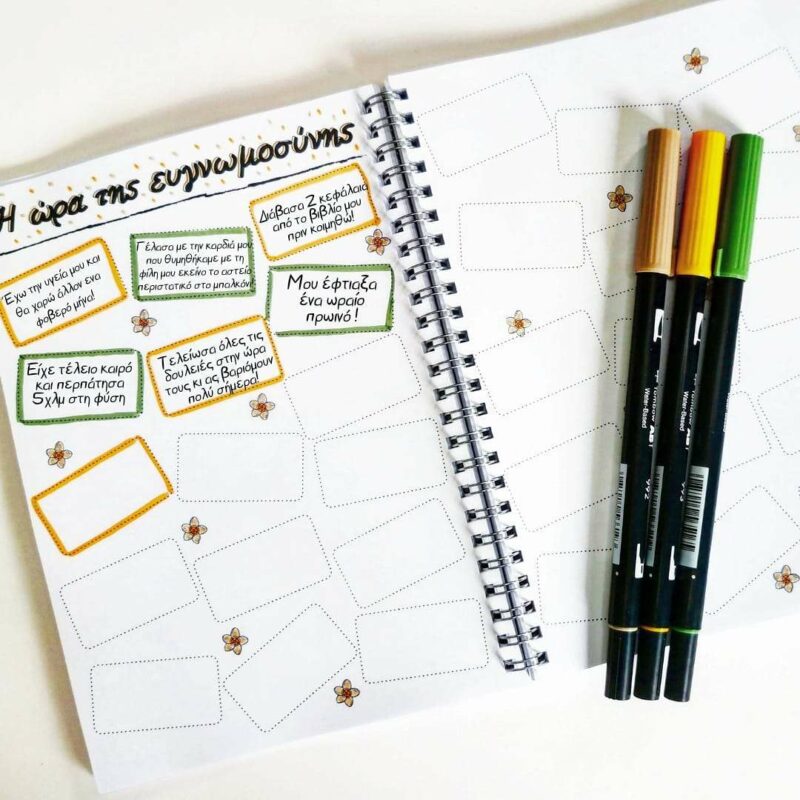 Η ώρα της ευγνωμοσύνης
Έχω την υγεία μου και
θα χαρώ άλλον ενα
φοβερό μήνα!
Γέλασα με την καρδιά μου
που θυμηθήκαμε με τη
φίλη μου εκείνο το αστείο
περιστατικό στο μπαλκόνι!
Διάβασα 2 κεφάλαια
από το βιβλίο μου
πριν κοιμηθώ!
Μου έφτιαξα
ένα ωραίο
πρωινό!
Είχε τέλειο καιρό
και περπάτησα
5χλμ στη φύση
Τελείωσα όλες τις
δουλειές στην ώρα
τους κι ας βαριόμουν
πολύ σήμερα!
Tombow ABT
Water-Based
992
Tombow ABT
Water-Based
993